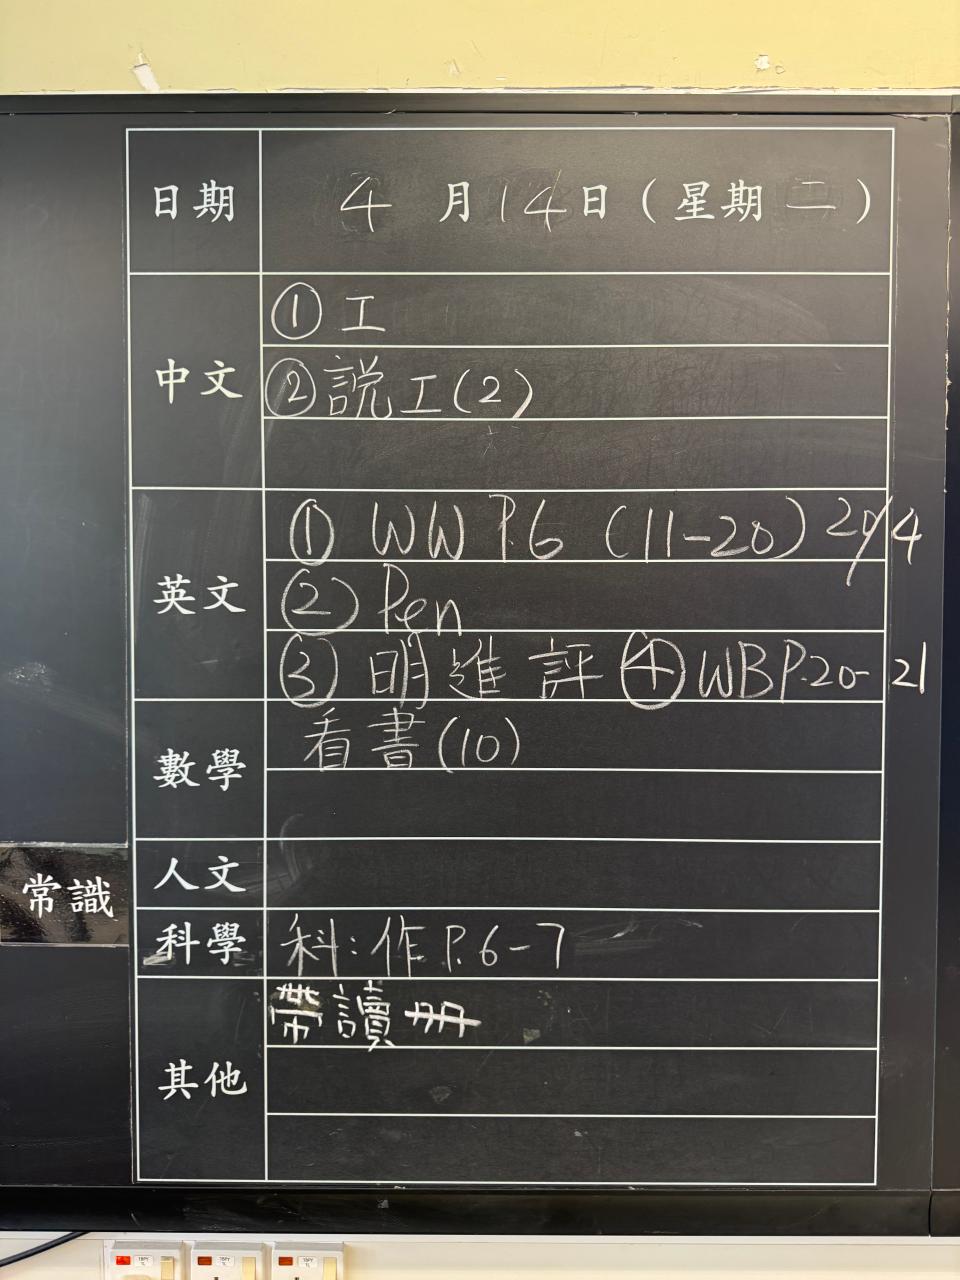 日期 4月14日(星期二)
中文 ①工
②説工(2)
英文 ① WW P.6 (11-20) 29/4
② Pen
③ 明進評 ④ WB P.20-21
數學 看書(10)
人文
常識
科學 科:作P.6-7
其他 帶讀冊